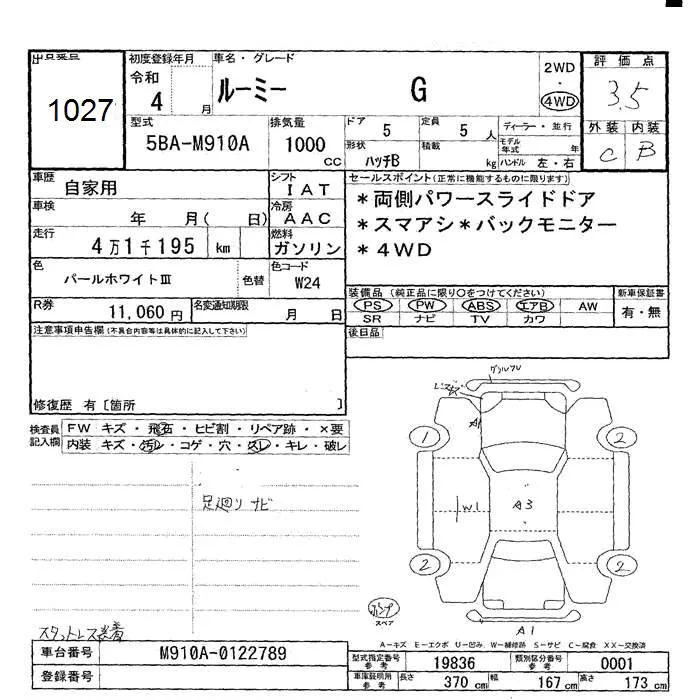 出品番号
1027
初度登録年月
令和
4 月
車名・グレード
ルーミー G
2WD
・
4WD
評価点
3.5
型式
5BA-M910A
排気量
1000
cc
ドア
5
定員
5 人
形状
ハッチB
積載
kg
ディーラー・並行
モデル年式 年
ハンドル 左・右
外装 内装
C B
車歴
自家用
シフト
IAT
車検
年 月( 日)
冷房
AAC
走行
4万1千195 km
燃料
ガソリン
色
パールホワイトⅢ
色替
色コード
W24
R券
11,060 円
名変通知期限
月 日
セールスポイント(正常に機能するものに限ります)
*両側パワースライドドア
*スマアシ*バックモニター
*4WD
装備品(純正品に限り○をつけてください)
PS PW ABS エアB AW
SR ナビ TV カワ
新車保証書
有・無
後日品
注意事項申告欄(不具合内容等は具体的に記入して下さい)
修復歴 有〔箇所 〕
検査員
記入欄
FW キズ・飛石・ヒビ割・リペア跡・×要
内装 キズ・汚レ・コゲ・穴・スレ・キレ・破レ
足廻リサビ
スタットレス装着
グリルフU
A1
1
2
W1
A3
2
2
A1
ポンプ
スペア
A-キズ E-エクボ U-凹み W-補修跡 S-サビ C-腐食 XX-交換済
車台番号
M910A-0122789
登録番号
型式指定番号
参考
19836
類別区分番号
参考
0001
車庫証明用
参考
長さ
370 cm
幅
167 cm
高さ
173 cm